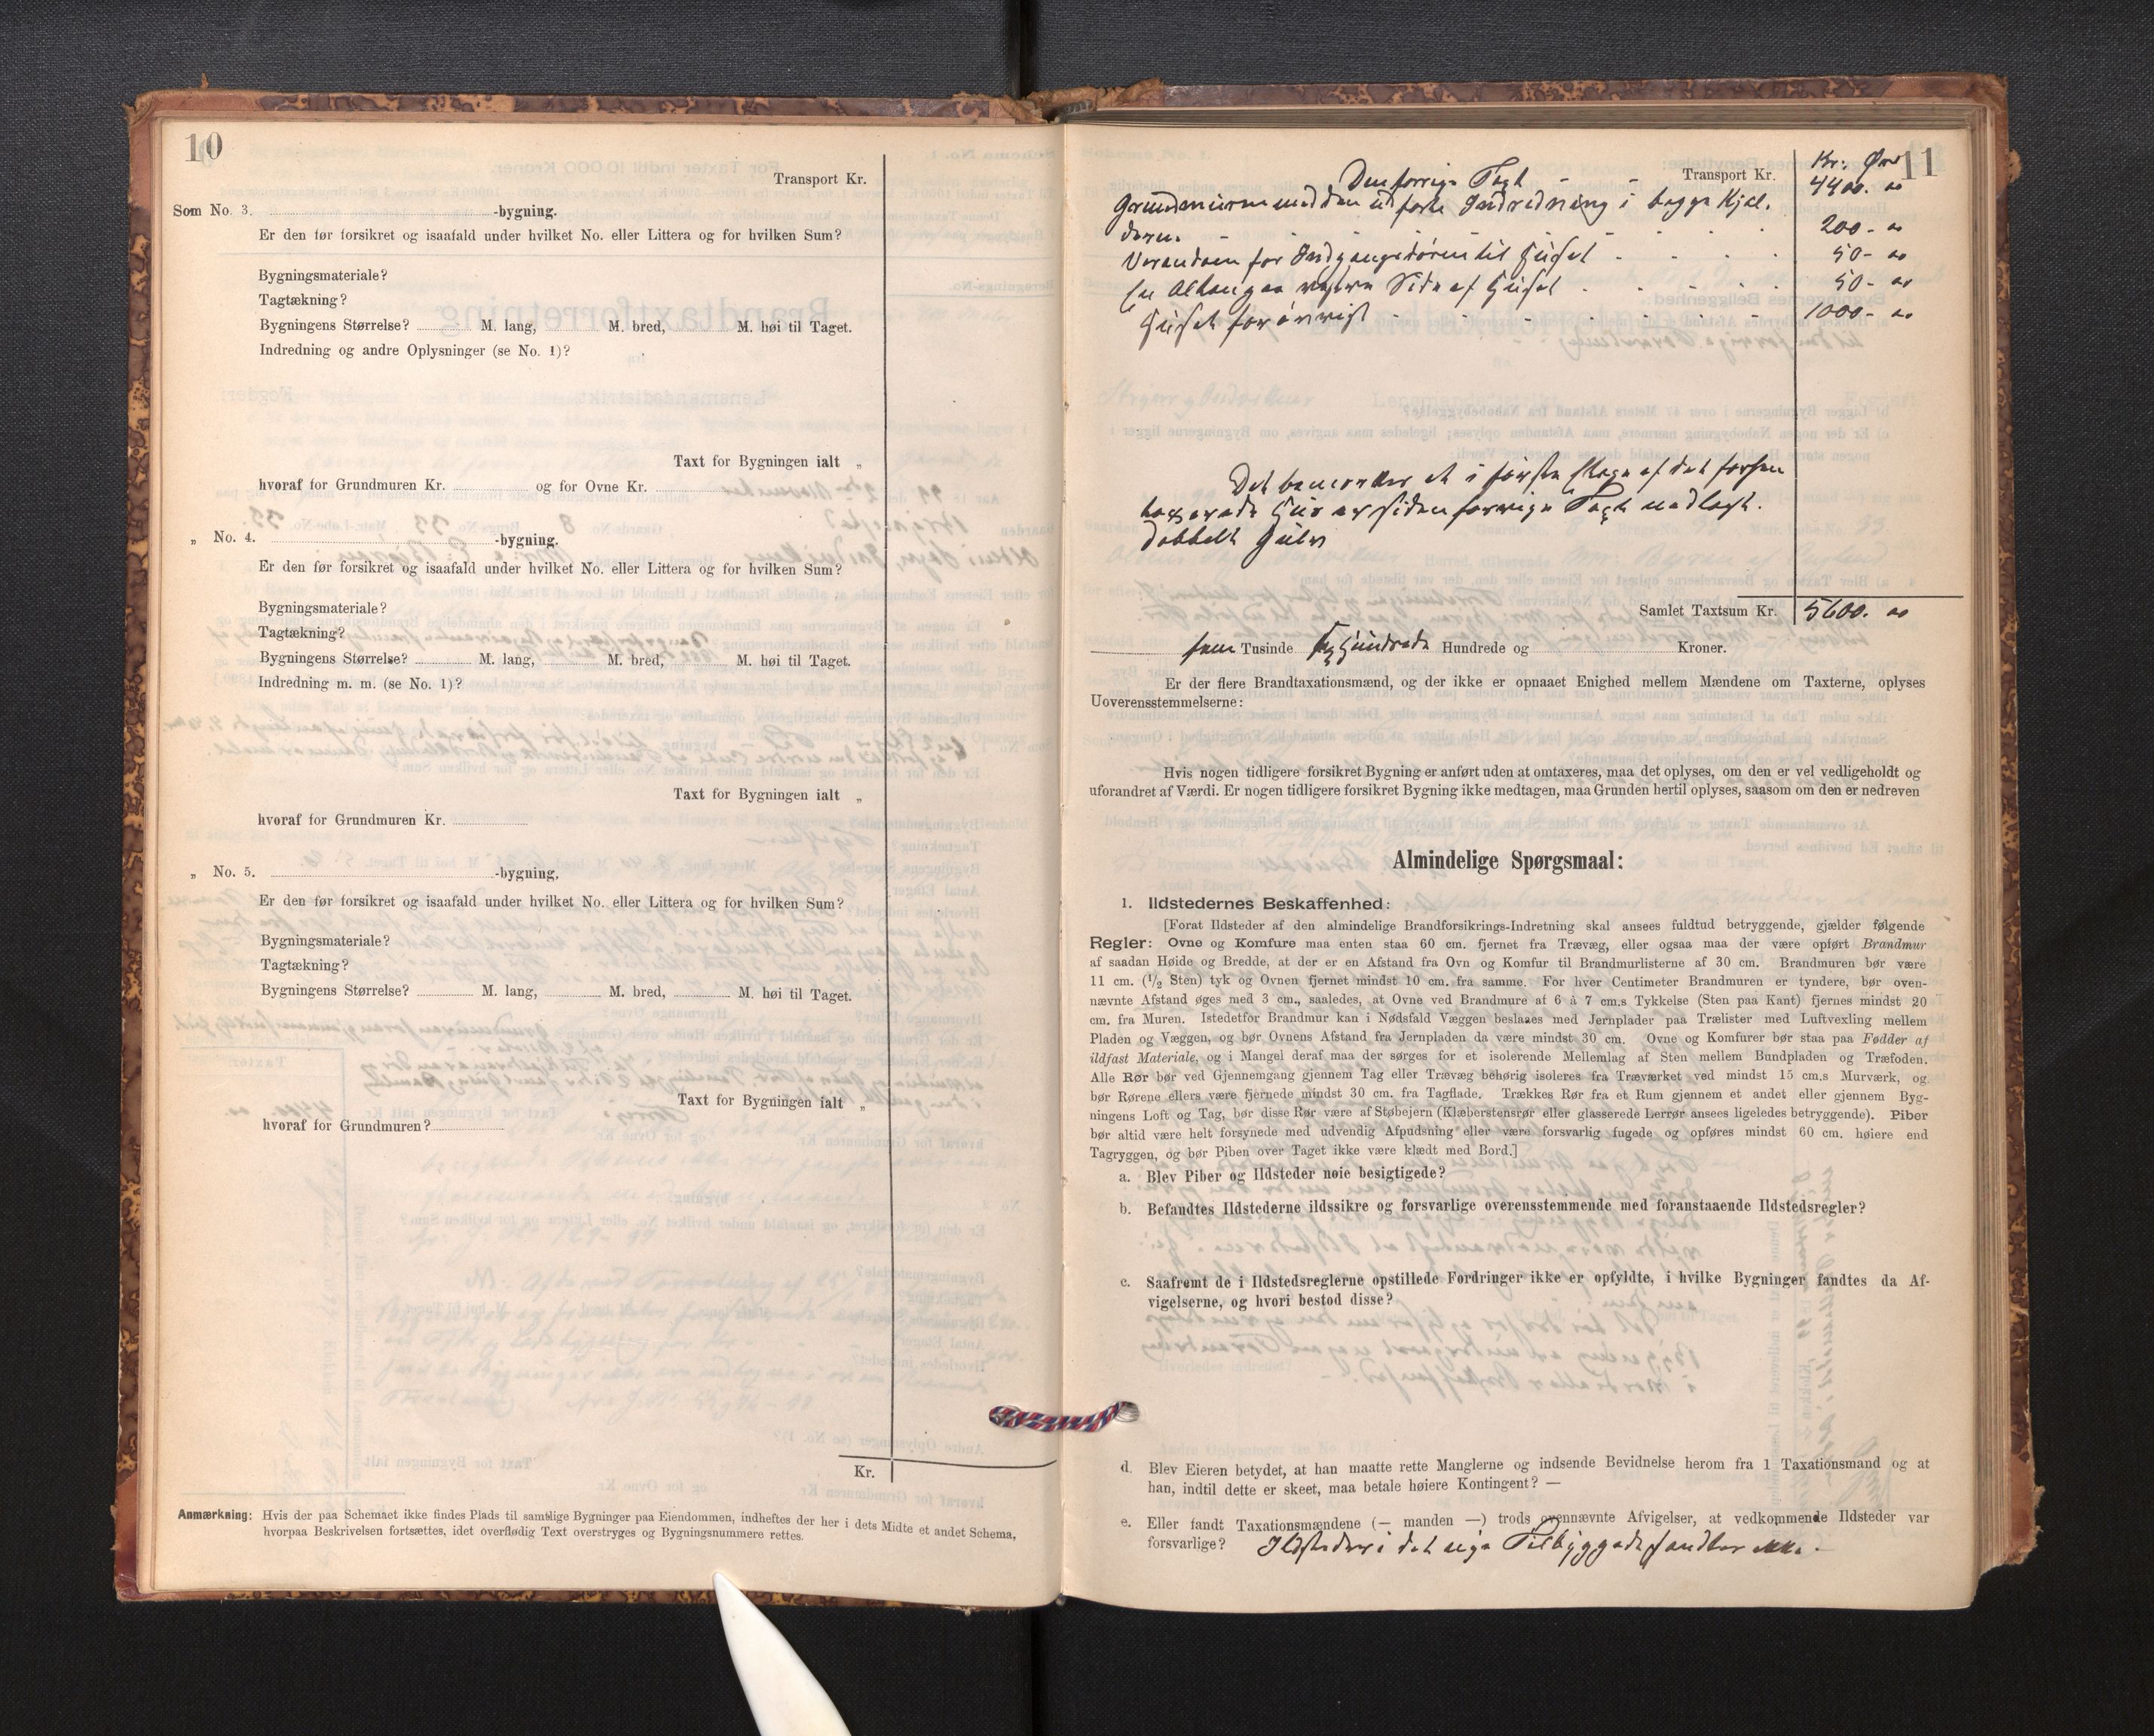 10
Transport Kr.
Som No. 3. -bygning.
Er den før forsikret og isaafald under hvilket No. eller Littera og for hvilken Sum?
Bygningsmateriale?
Tagtækning?
Bygningens Størrelse? M. lang, M. bred, M. høi til Taget.
Indredning og andre Oplysninger (se No. 1)?
Taxt for Bygningen ialt „
hvoraf for Grundmuren Kr. og for Ovne Kr.
„ No. 4. -bygning.
Er den før forsikret og isaafald under hvilket No. eller Littera og for hvilken Sum?
Bygningsmateriale?
Tagtækning?
Bygningens Størrelse? M. lang, M. bred, M. høi til Taget.
Indredning m. m. (se No. 1)?
Taxt for Bygningen ialt „
hvoraf for Grundmuren Kr.
„ No. 5. -bygning,
Er den før forsikret og isaafald under hvilket No. eller Littera og for hvilken Sum?
Bygningsmateriale?
Tagtækning?
Bygningens Størrelse? M. lang, M. bred, M. høi til Taget.
Taxt for Bygningen ialt „
hvoraf for Grundmuren?
Kr.
Anmærkning: Hvis der paa Schemaet ikke findes Plads til samtlige Bygninger paa Eiendommen, indheftes der her i dets Midte et andet Schema,
hvorpaa Beskrivelsen fortsættes, idet overflødig Text overstryges og Bygningsnummere rettes.
11
Kr: Øre
Den forrige Taxt - - Transport Kr. 4400. 00
Grundmuren med den udførte Indredning i begge Kjel-
dere. 200 - 00
Verandaen for Indgangsdøren til Huset 50 - 00
En Altan paa Siden af Huset 50 - 00
Huset forøvrigt 1000 - 00
Det bemærkes at i første Etage af det forhen
Huus er siden forrige Taxt nedlagt
dobbelt Gulv
Samlet Taxtsum Kr. 5600. 00
fem Tusinde sex Hundrede Hundrede og Kroner.
Er der flere Brandtaxationsmænd, og der ikke er opnaaet Enighed mellem Mændene om Taxterne, oplyses
Uoverensstemmelserne:
Hvis nogen tidligere forsikret Bygning er anført uden at omtaxeres, maa det oplyses, om den er vel vedligeholdt og
uforandret af Værdi. Er nogen tidligere forsikret Bygning ikke medtagen, maa Grunden hertil oplyses, saasom om den er nedreven
Almindelige Spørgsmaal:
1. Ildstedernes Beskaffenhed:
[Forat Ildsteder af den almindelige Brandforsikrings-Indretning skal ansees fuldtud betryggende, gjælder følgende
Regler: Ovne og Komfure maa enten staa 60 cm. fjernet fra Trævæg, eller ogsaa maa der være opført Brandmur
af saadan Høide og Bredde, at der er en Afstand fra Ovn og Komfur til Brandmurlisterne af 30 cm. Brandmuren bør være
11 cm. (1/2 Sten) tyk og Ovnen fjernet mindst 10 cm. fra samme. For hver Centimeter Brandmuren er tyndere, bør oven-
nævnte Afstand øges med 3 cm., saaledes, at Ovne ved Brandmure af 6 à 7 cm.s Tykkelse (Sten paa Kant) fjernes mindst 20
cm. fra Muren. Istedetfor Brandmur kan i Nødsfald Væggen beslaaes med Jernplader paa Trælister med Luftvexling mellem
Pladen og Væggen, og bør Ovnens Afstand fra Jernpladen da være mindst 30 cm. Ovne og Komfurer bør staa paa Fødder af
ildfast Materiale, og i Mangel deraf maa der sørges for et isolerende Mellemlag af Sten mellem Bundpladen og Træfoden.
Alle Rør bør ved Gjennemgang gjennem Tag eller Trævæg behørig isoleres fra Træværket ved mindst 15 cm.s Murværk, og
bør Rørene ellers være fjernede mindst 30 cm. fra Tagflade. Trækkes Rør fra et Rum gjennem et andet eller gjennem Byg-
ningens Loft og Tag, bør disse Rør være af Støbejern (Klæberstensrør eller glasserede Lerrør ansees ligeledes betryggende). Piber
bør altid være helt forsynede med udvendig Afpudsning eller være forsvarlig fugede og opføres mindst 60 cm. høiere end
Tagryggen, og bør Piben over Taget ikke være klædt med Bord.]
a. Blev Piber og Ildsteder nøie besigtigede?
b. Befandtes Ildstederne ildssikre og forsvarlige overensstemmende med foranstaaende Ildstedsregler?
c. Saafremt de i Ildstedsreglerne opstillede Fordringer ikke er opfyldte, i hvilke Bygninger fandtes da Af-
vigelserne, og hvori bestod disse?
d. Blev Eieren betydet, at han maatte rette Manglerne og indsende Bevidnelse herom fra 1 Taxationsmand og at
han, indtil dette er skeet, maa betale høiere Kontingent? —
e. Eller fandt Taxationsmændene (— manden —) trods ovennævnte Afvigelser, at vedkommende Ildsteder var
forsvarlige? Ildsteder i det nye Tilbyggede fandtes ikke. -